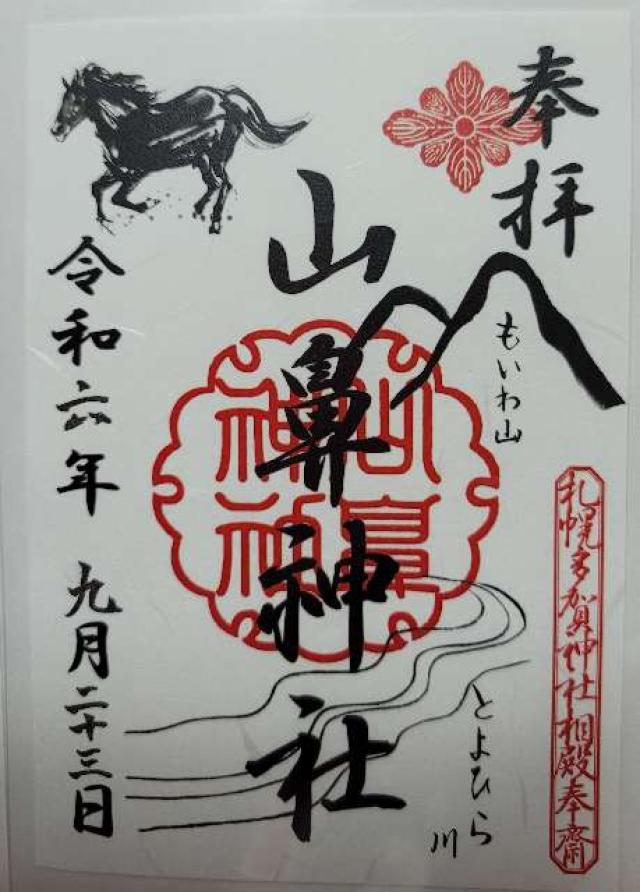 奉拝
もいわ山
札幌多賀神社相殿奉齋
山鼻神社
山鼻神社
とよひら川
令和六年 九月二十三日